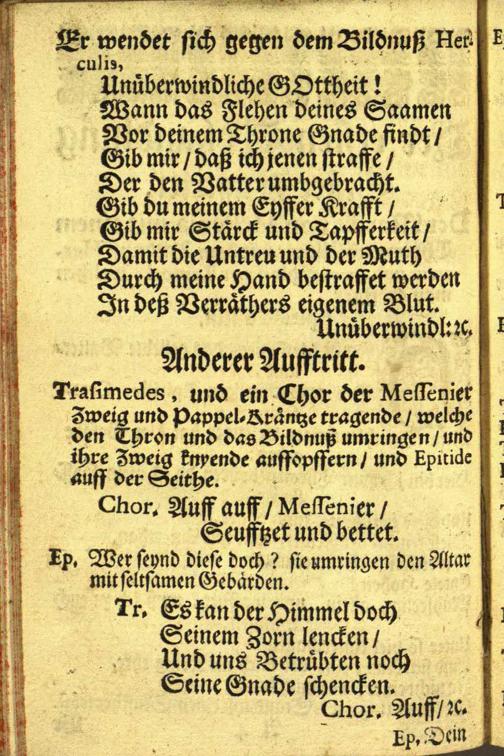 Er wendet sich gegen dem Bildnuß Her-
culis,
Unüberwindliche GOttheit!
Wann das Flehen deines Saamen
Vor deinem Throne Gnade findt /
Gib mir / daß ich jenen straffe /
Der den Vatter umbgebracht.
Gib du meinem Eyffer Krafft /
Gib mir Stärck und Tapfferkeit /
Damit die Untreu und der Muth
Durch meine Hand bestraffet werden
In deß Verräthers eigenem Blut.
Unüberwindl: ꝛc.
Anderer Aufftritt.
Trasimedes, und ein Chor der Messenier
Zweig und Pappel-Kräntze tragende / welche
den Thron und das Bildnuß umringen / und
ihre Zweig knyende auffopffern / und Epitide
auff der Seithe.
Chor. Auff auff / Messenier /
Seufftzet und bettet.
Ep. Wer seynd diese doch? sie umringen den Altar
mit seltsamen Gebärden.
Tr. Es kan der Himmel doch
Seinem Zorn lencken /
Und uns Betrübten noch
Seine Gnade schencken.
Chor. Auff / ꝛc.
Ep. Dein